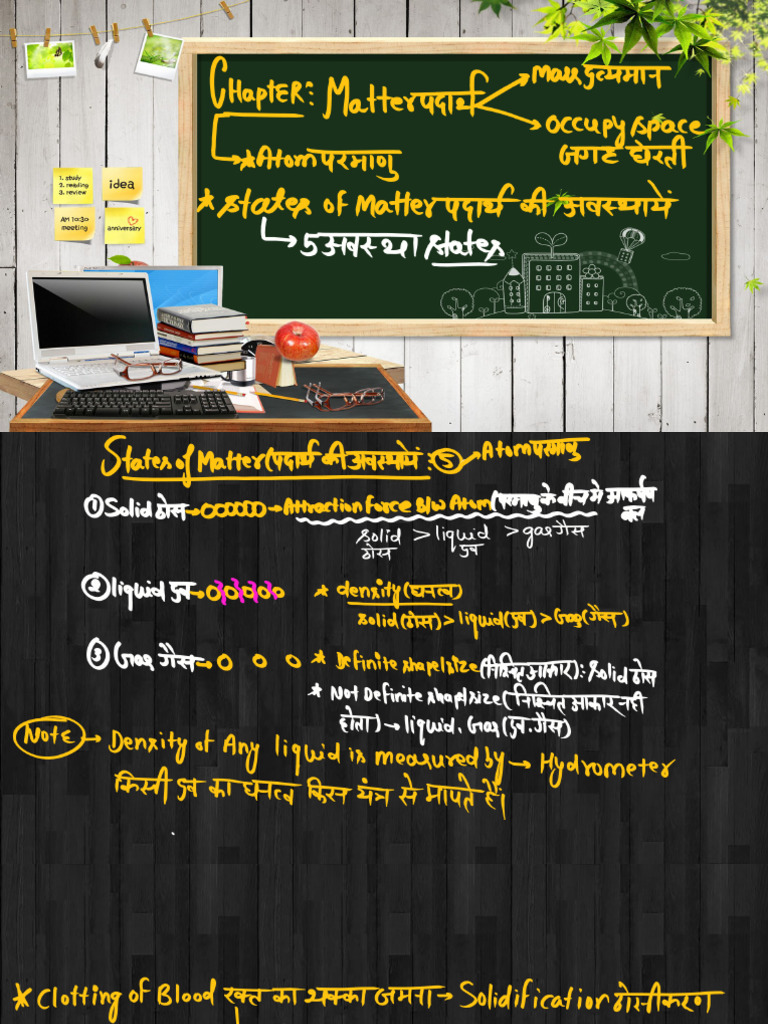 CHapTER: Matter पदार्थ → Mass द्रव्यमान
→ occupy space
जगह घेरती
→ * Atom परमाणु
* States of Matter पदार्थ की अवस्थायें
→ 5 अवस्था states
1. study
2. reading
3. review
idea
AM 10:30
meeting
anniversary
States of Matter (पदार्थ की अवस्थायें : 5 → Atom परमाणु
① Solid ठोस → 000000 → Attraction Force B/w Atom (परमाणु के बीच मे आकर्षण
बल
solid > liquid > gas गैस
ठोस द्रव
② liquid द्रव → 00000 * density (घनत्व)
solid (ठोस) > liquid (द्रव) > Gas (गैस)
③ Gas गैस → 0 0 0 * Definite shape/size (निश्चित आकार) : solid ठोस
* Not Definite shape/size (निश्चित आकार नही
होता) → liquid, Gas (द्रव, गैस)
Note → Density of Any liquid is measured by → Hydrometer
किसी द्रव का घनत्व किस यंत्र से मापते हैं।
* Clotting of Blood रक्त का थक्का जमना → Solidification ठोसीकरण